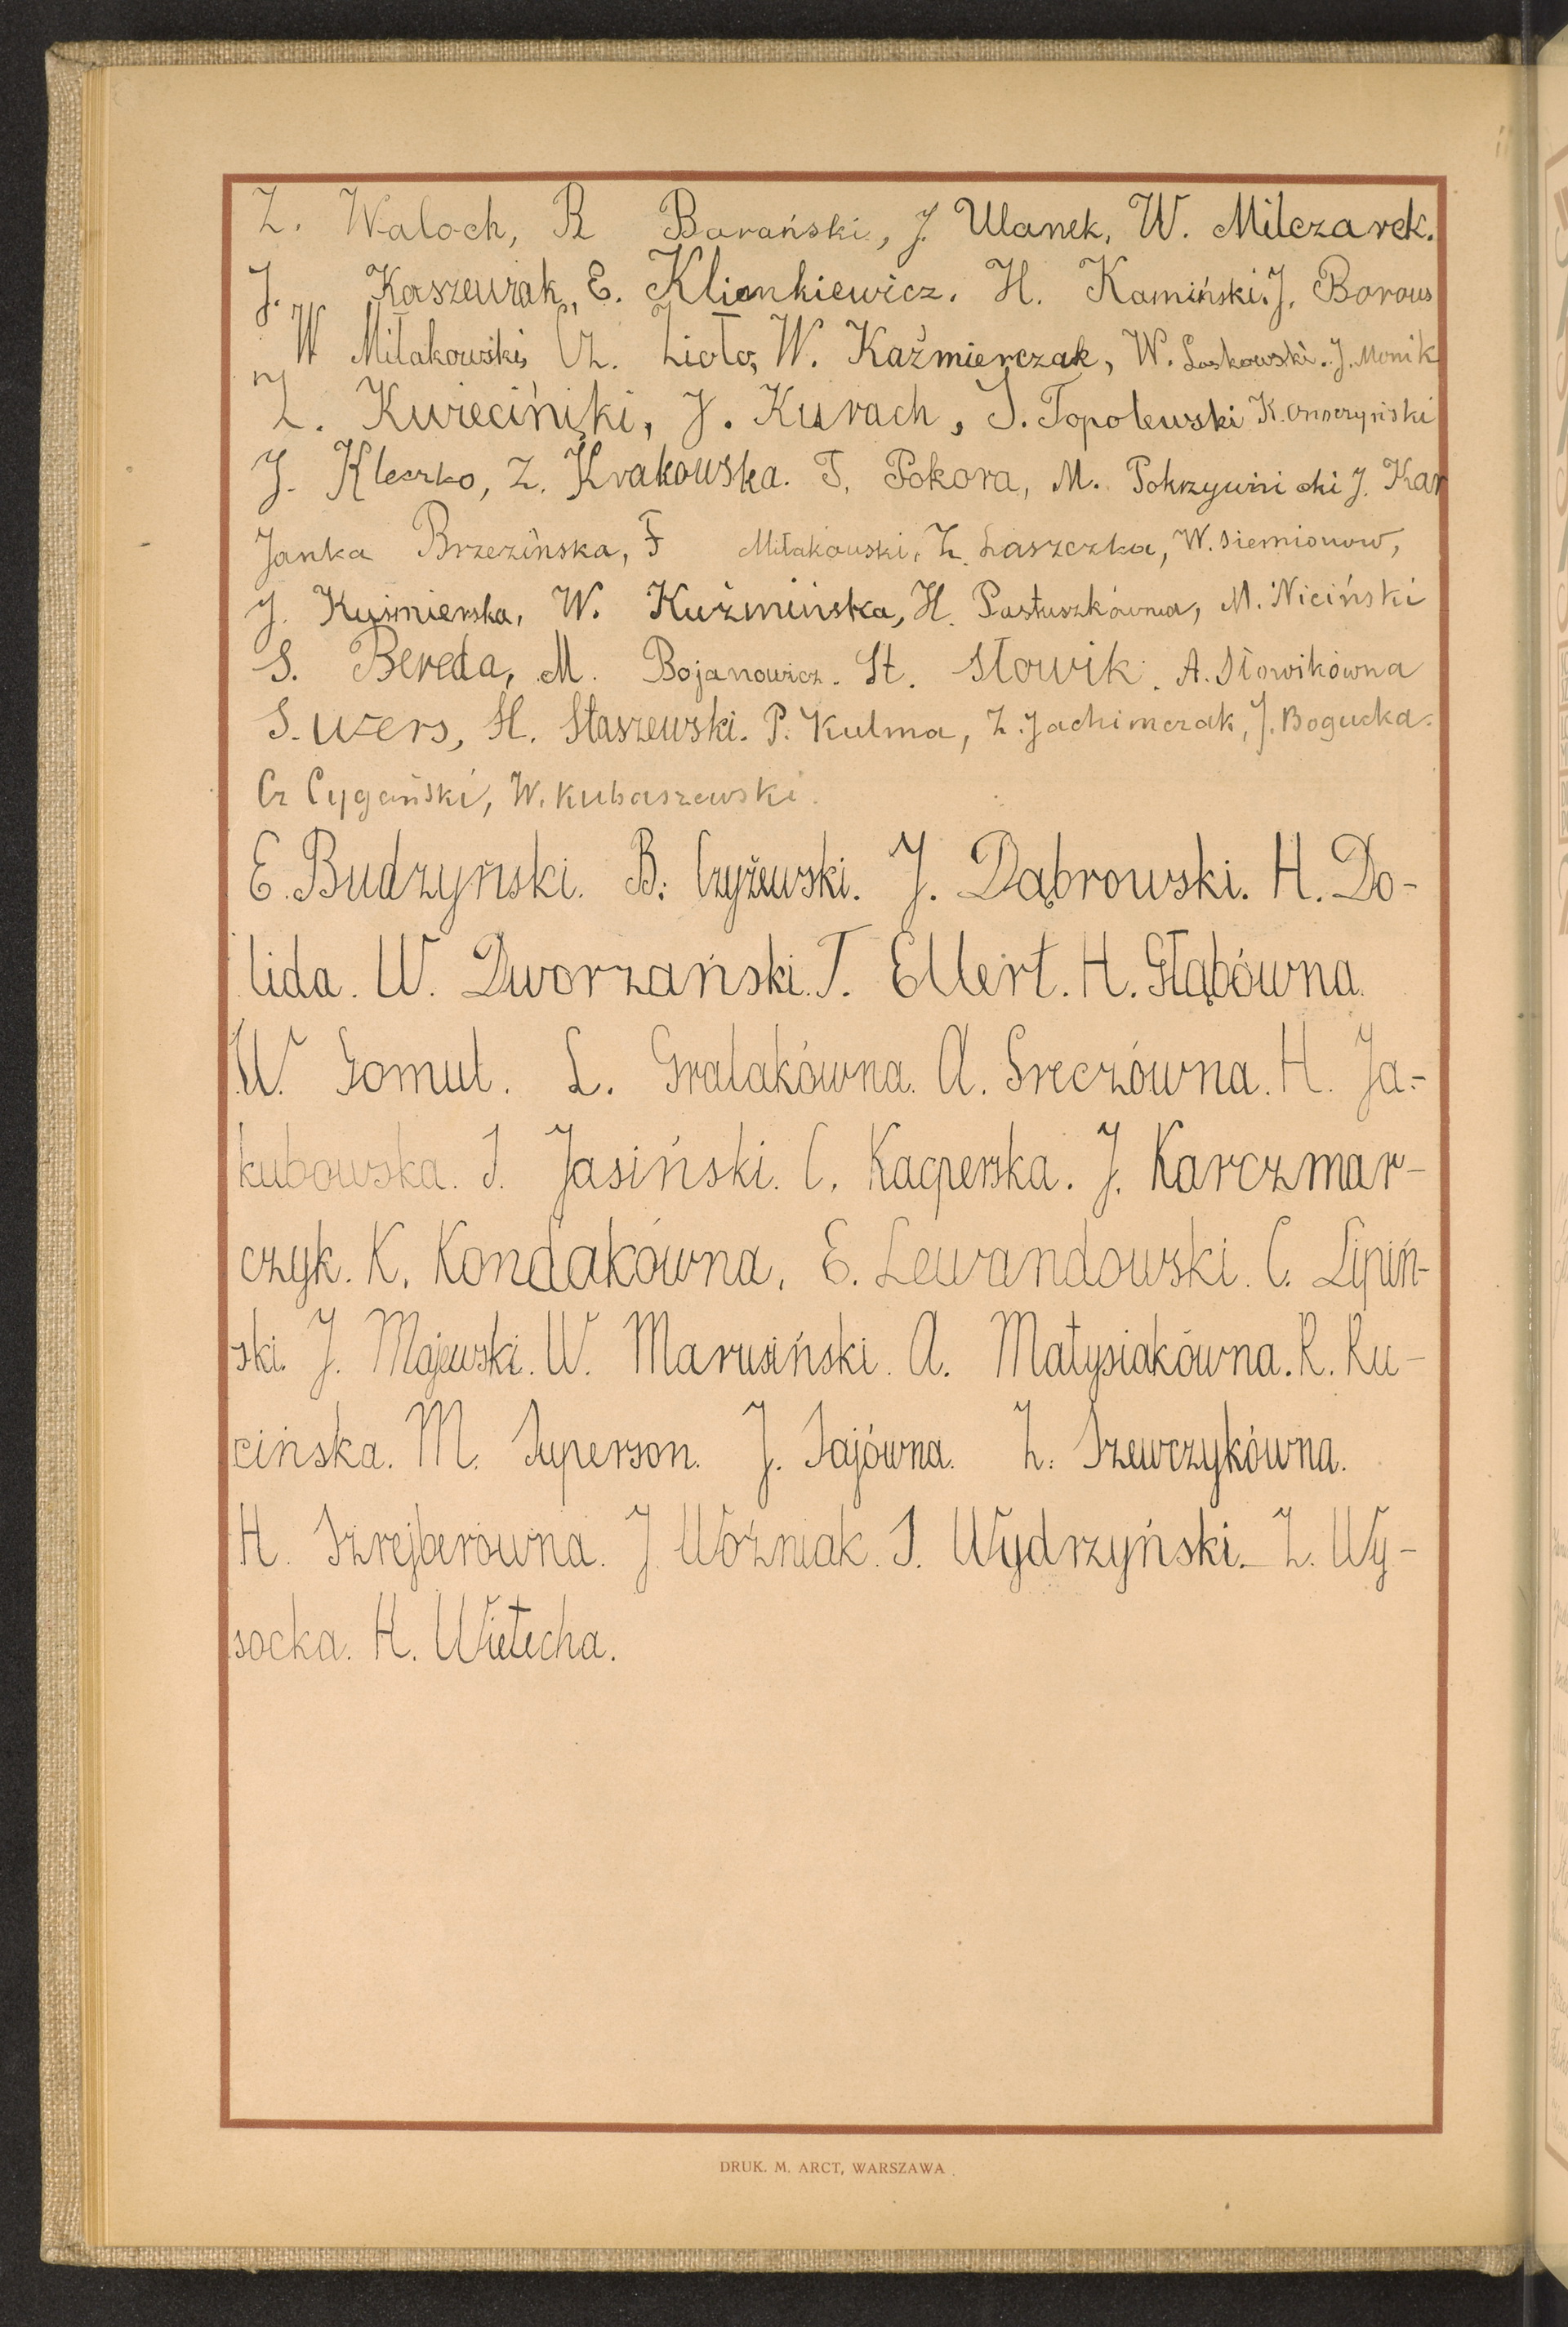 Z. Waloch, R Barański, J. Ulanek, W. Milczarek.
J. Kaszewiak, E. Klimkiewicz. H. Kamiński. J. Borows
W Miłakowski, Cz. Zioło, W. Kaźmierczak, W. Laskowski. J. Monik
Z. Kwieciński, J. Kurach, S. Topolewski K.
J. Kleczko, Z. Krakowska. T. Pokora, M. Pokrzywnicki J. Kar
Janka Brzezińska, F Miłakowski, Z. Laszczka, W. Siemionow,
J. Kuśmierska, W. Kuźmińska, H. Pastuszkówna, M. Niciński
S. Bereda, M. Bojanowicz. St. Słowik. A. Słowikówna
S. Wers, H. Staszewski. P. Kulma, Z. Jachimczak, J. Bogucka.
Cz Cygański, W. Kubaszewski.
E. Budzyński. B. Czyżewski. J. Dąbrowski. H. Do-
lida. W. Dworzański. T. Ellert. H. Głąbówna.
W. Gomuł. L. Gralakówna. A. Greczówna. H. Ja-
kubowska. S. Jasiński. C. Kacperska. J. Karczmar-
czyk. K. Kondakówna. E. Lewandowski. C. Lipiń-
ski. J. Majewski. W. Marusiński. A. Małysiakówna. R. Ru-
cińska. M. Superson. J. Sajówna. Z. Szewczykówna.
H. Szrejberówna. J. Woźniak. S. Wydrzyński. Z. Wy-
socka. H. Wietecha.
DRUK. M. ARCT, WARSZAWA